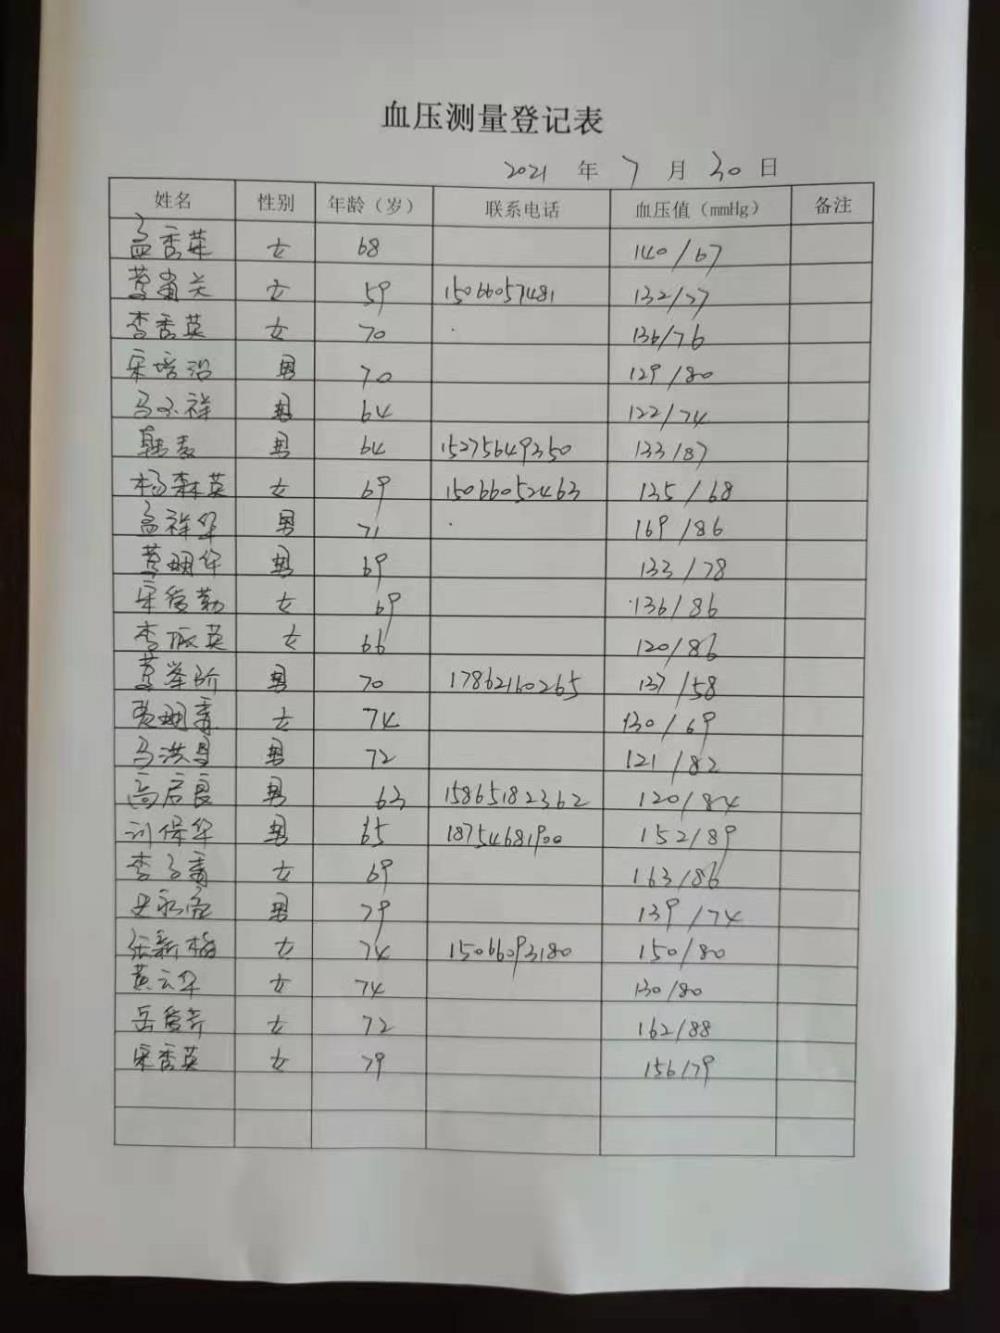 血压测量登记表
2021 年 7 月 30 日
姓名 性别 年龄（岁） 联系电话 血压值（mmHg） 备注
孟秀英 女 68 140/67
女 59 15066057481 132/77
李秀英 女 70 136/76
宋培沿 男 70 129/80
马 祥 男 64 122/74
韩 男 64 15275649350 133/87
杨森英 女 69 15066052463 135/68
孟祥华 男 71 169/86
明华 男 69 133/78
宋爱勤 女 69 136/86
李振英 女 66 120/86
男 70 17862160265 137/58
女 74 130/69
马洪昌 男 72 121/82
高启良 男 63 15865182362 120/84
刘保华 男 65 18754681900 152/89
李 女 69 163/86
史永 男 79 139/74
张新梅 女 74 15066093180 150/80
黄云华 女 74 130/80
岳爱芳 女 72 162/88
宋秀英 女 79 156/79